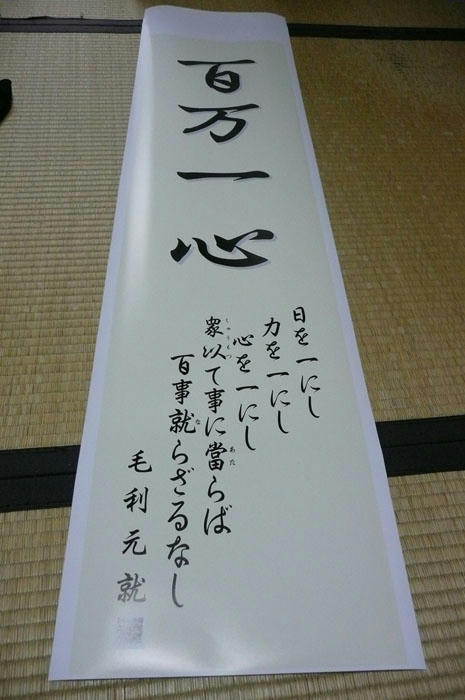 百万一心
日を一にし
力を一にし
心を一にし
衆以て事に當らば
百事就らざるなし
毛利元就